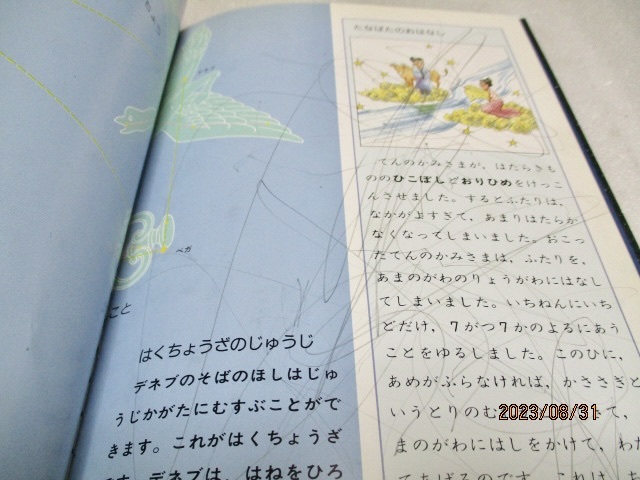 デネブ
ベガ
こと
はくちょうざのじゅうじ
デネブのそばのほしはじゅ
うじかがたにむすぶことがで
きます。これがはくちょうざ
です。デネブは、はねをひろ
たなばたのおはなし
てんのかみさまが、はたらきも
ののひこぼしとおりひめをけっこ
んさせました。するとふたりは、
なかがよすぎて、あまりはたらか
なくなってしまいました。おこっ
たてんのかみさまは、ふたりを、
あまのがわのりょうがわにはなし
てしまいました。いちねんにいち
どだけ、7がつ7かのよるにあう
ことをゆるしました。このひに、
あめがふらなければ、かささぎと
いうとりのむ
て、
まのがわにはしをかけて、わた
てあげるのです。これは
2023/08/31